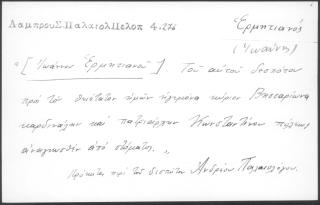 Λαμπρου Σ. Παλαιολ Πελοπ 4.275
Ἑρμητιανός
(Ἰωάννης)
"[Ἰωάννου Ἑρμητιανοῦ]. Τοῦ αὐτοῦ δεσπότου
πρὸ τὸν θειότατον ἡμῶν κύριον Βησσαρίωνα
καρδινάλην καὶ πατριάρχην Κωνσταντίνου πόλεως
ἀναγνωσθὲν ἀπὸ στόματος."
Πρόκειται περὶ τοῦ δεσπότου Ἀνδρέου Παλαιολόγου.